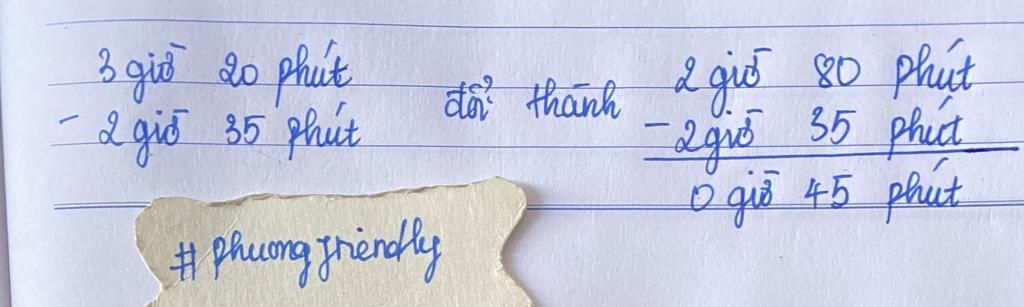 3 giờ 20 phút
- 2 giờ 35 phút
đổi thành
2 giờ 80 phút
- 2 giờ 35 phút
0 giờ 45 phút
# phuong friendly